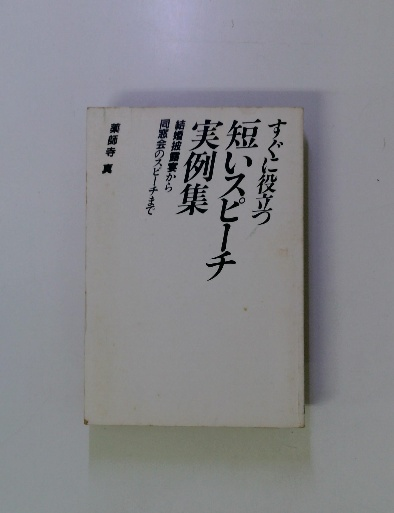 すぐに役立つ
短いスピーチ
実例集
結婚披露宴から
同窓会のスピーチまで
薬師寺 真